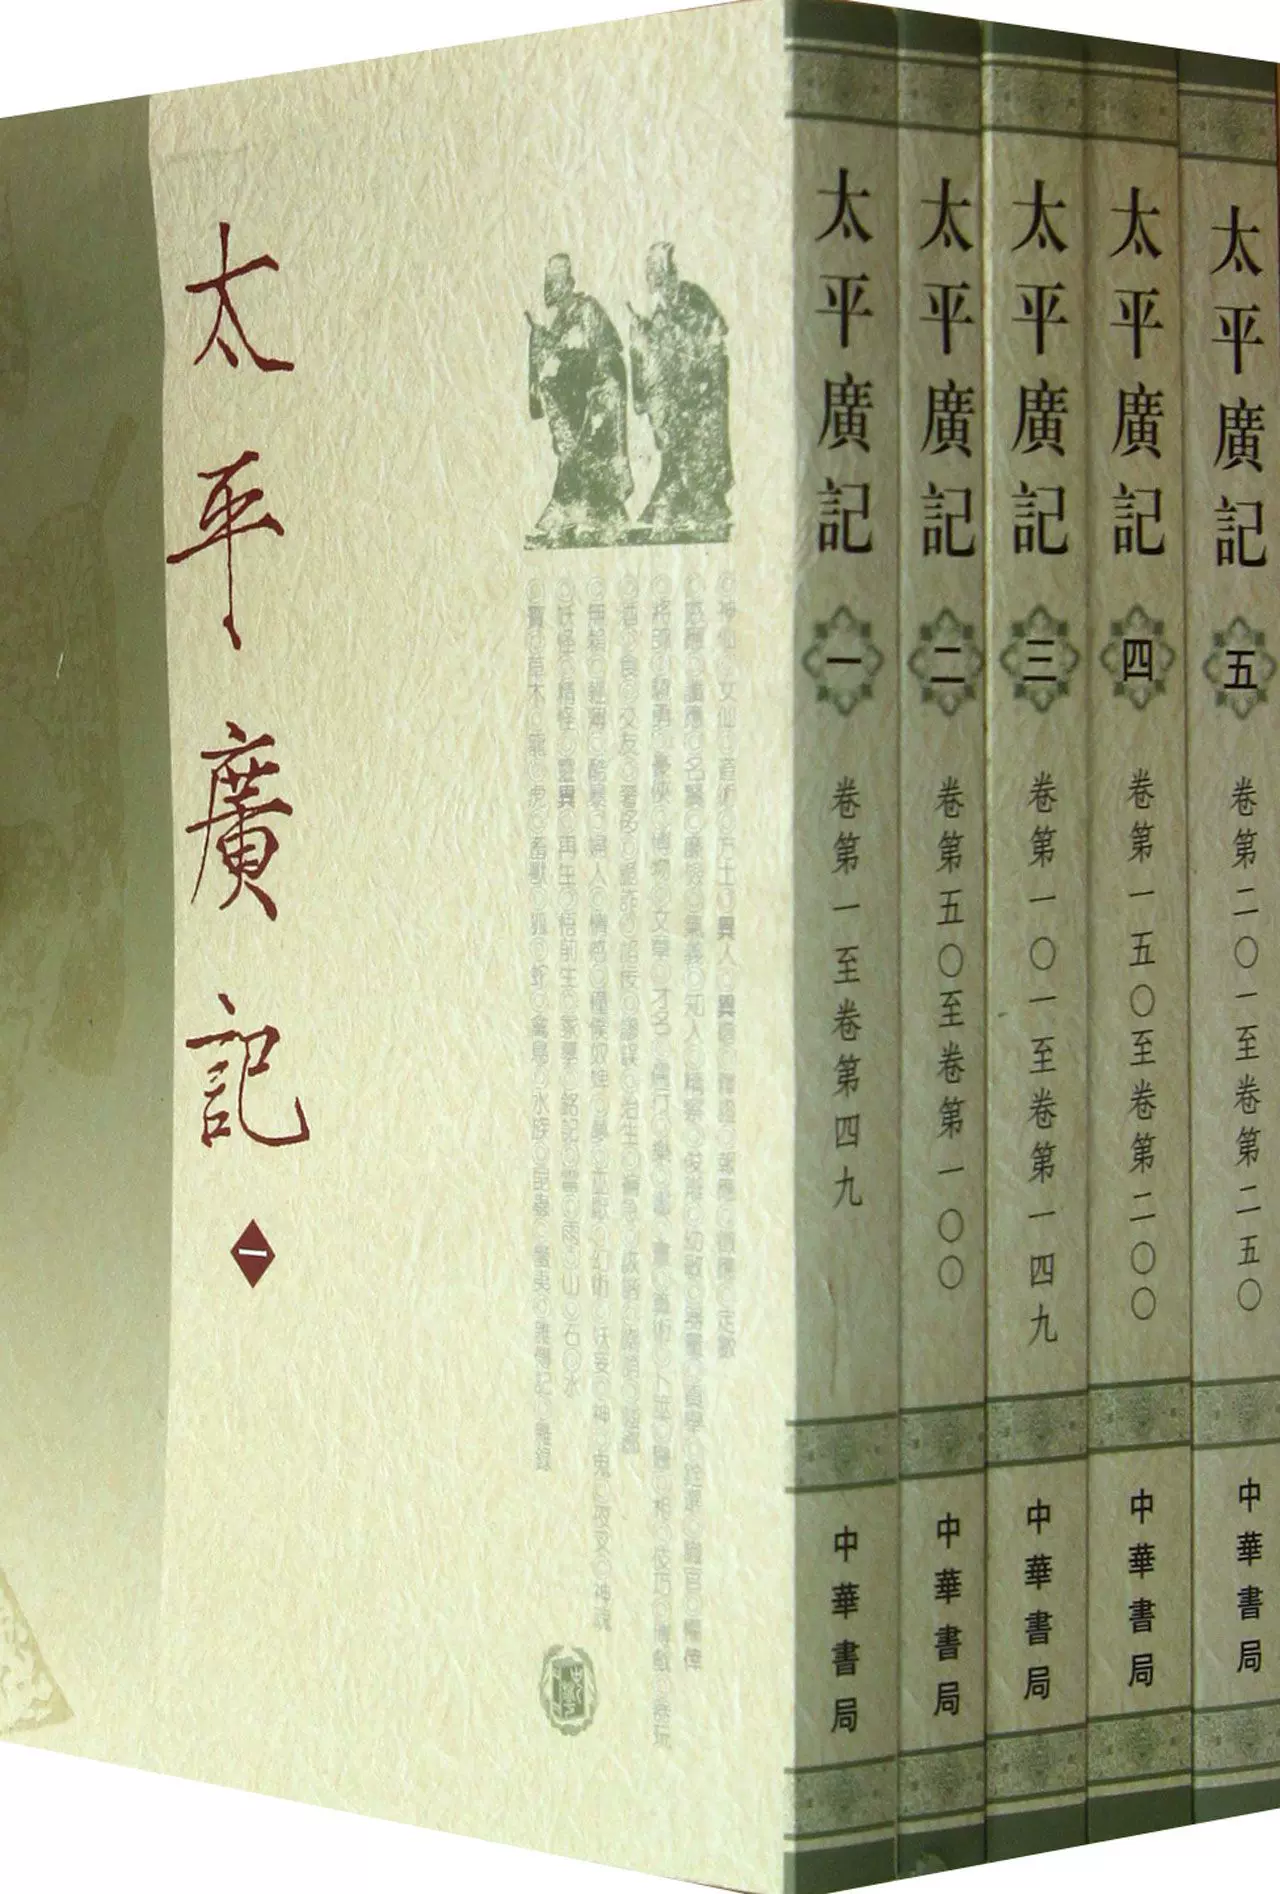 太平廣記
一
◎神仙◎女仙◎道術◎方士◎異人◎異僧◎釋證◎報應◎徵應◎定數
◎感應◎讖應◎名賢◎廉儉◎氣義◎知人◎精察◎俊辯◎幼敏◎器量◎貢舉◎銓選◎職官◎權倖
◎將帥◎驍勇◎豪俠◎博物◎文章◎才名◎儒行◎樂◎書◎畫◎算術◎卜筮◎醫◎相◎伎巧◎博戲◎器玩
◎酒◎食◎交友◎奢侈◎詭詐◎諂佞◎謬誤◎治生◎褊急◎詼諧◎嘲誚◎嗤鄙
◎無賴◎輕薄◎酷暴◎婦人◎情感◎童僕奴婢◎夢◎巫厭◎幻術◎妖妄◎神◎鬼◎夜叉◎神魂
◎妖怪◎精怪◎靈異◎再生◎悟前生◎冢墓◎銘記◎雷◎雨◎山◎石◎水
◎寶◎草木◎龍◎虎◎畜獸◎狐◎蛇◎禽鳥◎水族◎昆蟲◎蠻夷◎雜傳記◎雜錄
太平廣記
一
卷第一至卷第四九
中華書局
太平廣記
二
卷第五〇至卷第一〇〇
中華書局
太平廣記
三
卷第一〇一至卷第一四九
中華書局
太平廣記
四
卷第一五〇至卷第二〇〇
中華書局
太平廣記
五
卷第二〇一至卷第二五〇
中華書局